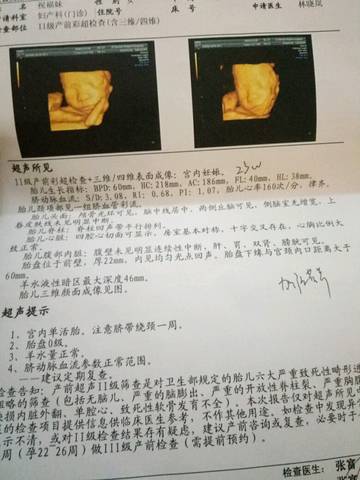 姓名 祝福妹 性别 女
申请科室 妇产科(门诊) 住院号 床号 申请医生 林晓凤
检查部位 II级产前彩超检查(含三维/四维)
超声所见
II级产前彩超检查+三维/四维表面成像:宫内妊娠, 23W
胎儿生长指标: BPD:60mm, HC:218mm, AC:186mm, FL:40mm, HL:38mm,
脐动脉血流: S/D:3.08, RI: 0.68, PI: 1.07, 胎儿心率160次/分, 律齐,
胎儿颈项部见一组脐血管彩流。
胎儿头面: 颅骨光环可见, 脑中线居中, 两侧丘脑可见, 侧脑室无增宽, 上
唇皮肤未见明显中断。
胎儿脊柱: 脊柱四声带平行排列。
胎儿心脏: 四腔心切面可显示, 房室基本对称, 十字交叉存在, 心胸比例大
致正常。
胎儿腹部内脏: 腹壁未见明显连续性中断, 肝、胃、双肾、膀胱可见。
胎盘位于前壁, 厚22mm, 内见均匀光点回声。胎盘下缘与宫颈内口距离大于
60mm。
羊水液性暗区最大深度46mm。
胎儿三维颜面成像见图。
超声提示
1、宫内单活胎, 注意脐带绕颈一周。
2、胎盘0级。
3、羊水量正常。
4、脐动脉血流参数正常范围。
——建议定期复查。
检查告知: 产前超声II级筛查是对卫生部规定的胎儿六大严重致死性畸形进
粗略的筛查(包括无脑儿、严重的脑膨出、严重的开放性脊柱裂、严重胸腹
缺损内脏外翻、单腔心、致死性软骨发育不全)。本次报告仅对超声所见中
的检查项目提供信息供临床医生参考, 不作其他用途。如检查中发现异
示不清, 或对II级检查结果存有疑虑, 建议产前咨询或复查。必要时于
周(孕22~26周)做III级产前检查(需提前预约)。
检查医生: 张富